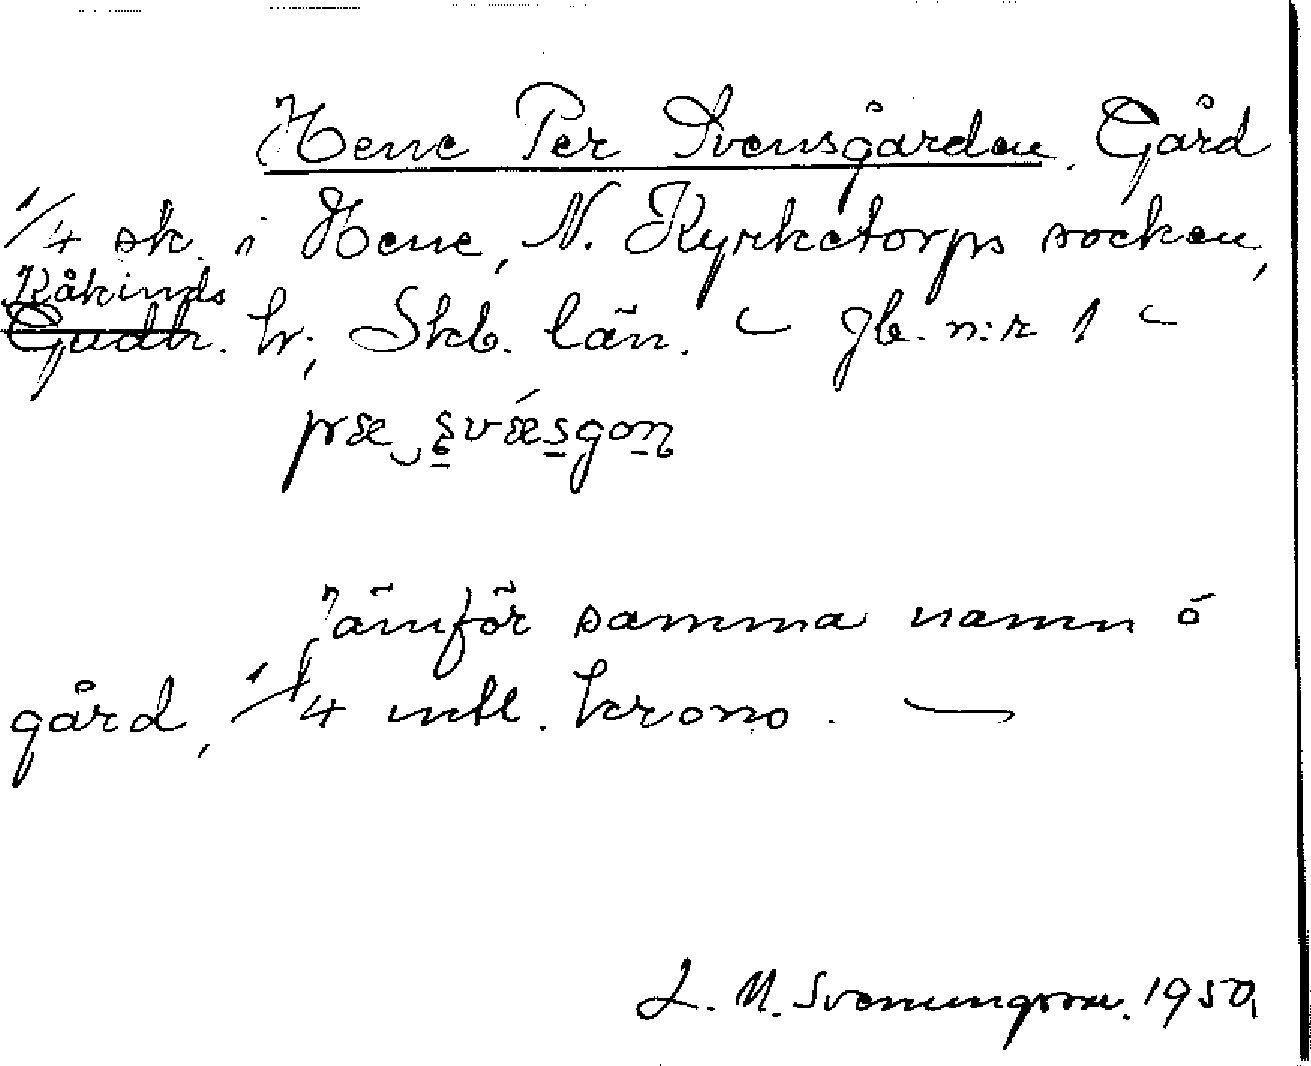 Hene Per Svensgården. Gård
1/4 sk. i Hene, N. Kyrketorps socken,
Kåkinds
Gudh. h:, Skb. län. – gb. n:r 1 –
præ svǽsgon
Jämför samma namn å
gård, 1/4 mtl. krono. —
L. M. Svenungsson. 1950.